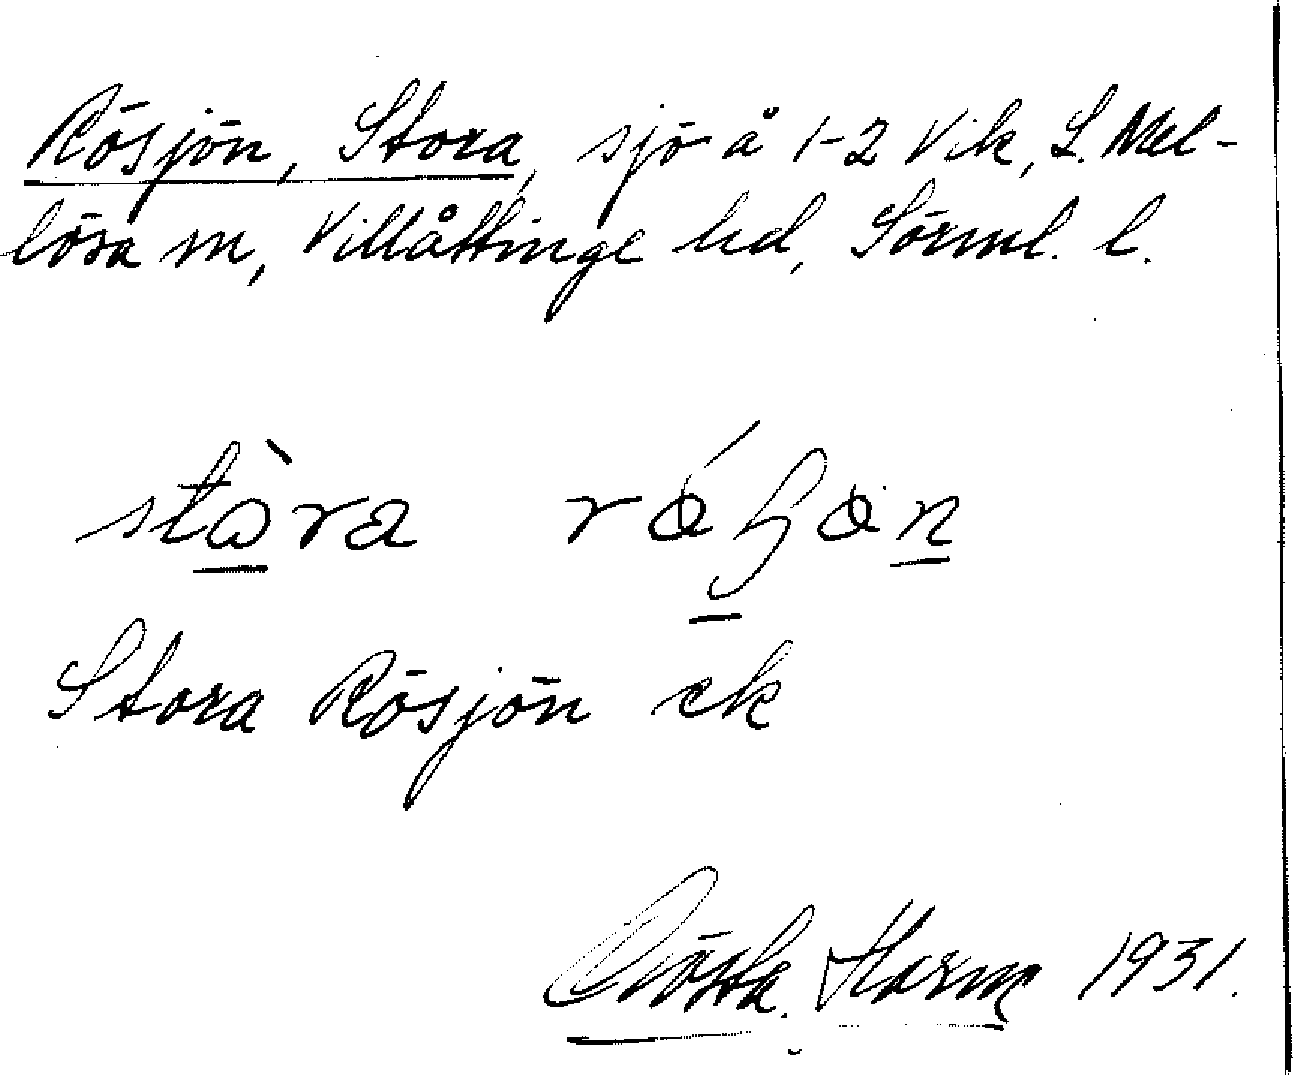 Rösjön, Stora, sjö å 1-2 Vik, L. Mel-
lösa sn, Villåttinge hd, Sörml. l.
stɷ̀ra
Stora Rösjön ek
Gösta 1931.